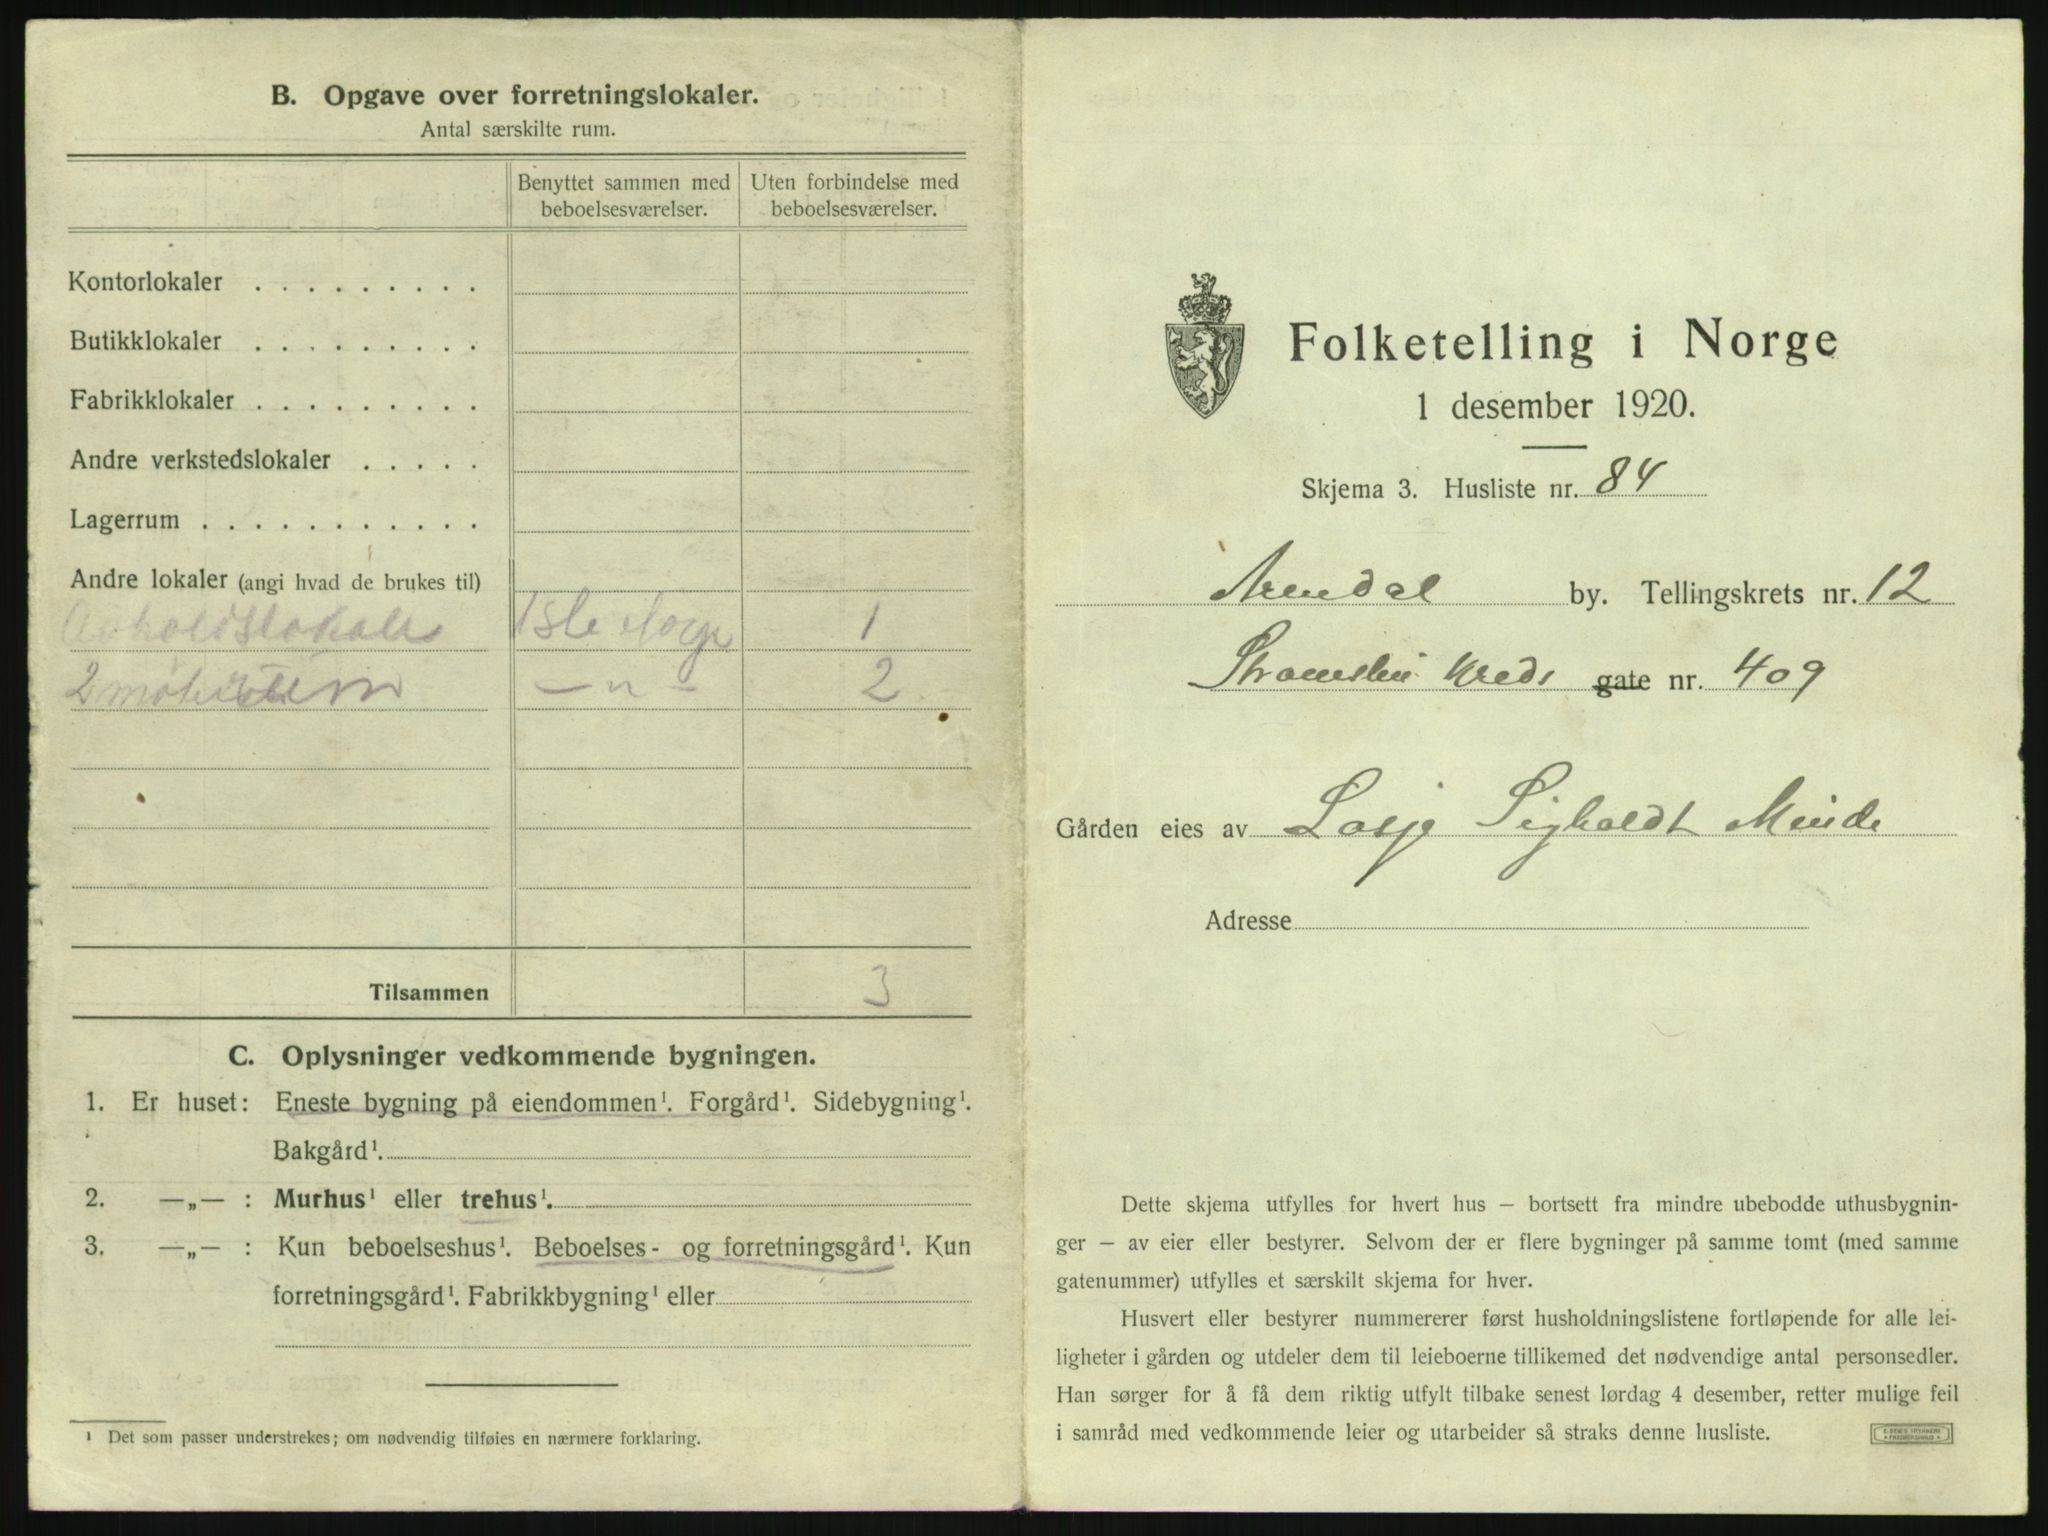 B. Opgave over forretningslokaler.
Antal særskilte rum.
Benyttet sammen med beboelsesværelser.
Uten forbindelse med beboelsesværelser.
Kontorlokaler . . . . . . . . .
Butikklokaler . . . . . . . . .
Fabrikklokaler . . . . . . . . .
Andre verkstedslokaler . . . . .
Lagerrum . . . . . . . . . . .
Andre lokaler (angi hvad de brukes til)
1
2 møterum — „ — 2
Tilsammen 3
C. Oplysninger vedkommende bygningen.
1. Er huset: Eneste bygning på eiendommen¹. Forgård¹. Sidebygning¹.
Bakgård¹.
2. —„— : Murhus¹ eller trehus¹.
3. —„— : Kun beboelseshus¹. Beboelses- og forretningsgård¹. Kun
forretningsgård¹. Fabrikkbygning¹ eller
¹ Det som passer understrekes; om nødvendig tilføies en nærmere forklaring.
Folketelling i Norge
1 desember 1920.
Skjema 3. Husliste nr. 84
Arendal by. Tellingskrets nr. 12
Strømsbu Kreds gate nr. 409
Gården eies av Losje Sigholdt Minde
Adresse
Dette skjema utfylles for hvert hus – bortsett fra mindre ubebodde uthusbygnin-
ger – av eier eller bestyrer. Selvom der er flere bygninger på samme tomt (med samme
gatenummer) utfylles et særskilt skjema for hver.
Husvert eller bestyrer nummererer først husholdningslistene fortløpende for alle lei-
ligheter i gården og utdeler dem til leieboerne tillikemed det nødvendige antal personsedler.
Han sørger for å få dem riktig utfylt tilbake senest lørdag 4 desember, retter mulige feil
i samråd med vedkommende leier og utarbeider så straks denne husliste.